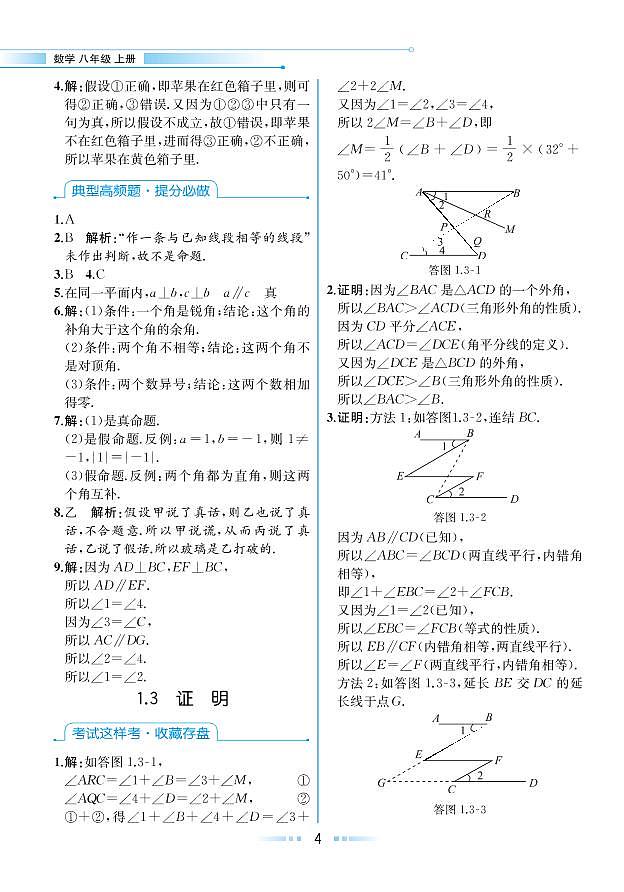 数学 八年级 上册
4.解:假设①正确,即苹果在红色箱子里,则可
得②正确,③错误.又因为①②③中只有一
句为真,所以假设不成立,故①错误,即苹果
不在红色箱子里,进而得③正确,②不正确,
所以苹果在黄色箱子里.
典型高频题·提分必做
1.A
2.B 解析:“作一条与已知线段相等的线段”
未作出判断,故不是命题.
3.B 4.C
5.在同一平面内,a⊥b,c⊥b a∥c 真
6.解:(1)条件:一个角是锐角;结论:这个角的
补角大于这个角的余角.
(2)条件:两个角不相等;结论:这两个角不
是对顶角.
(3)条件:两个数异号;结论:这两个数相加
得零.
7.解:(1)是真命题.
(2)是假命题.反例:a=1,b=-1,则 1≠
-1,|1|=|-1|.
(3)假命题.反例:两个角都为直角,则这两
个角互补.
8.乙 解析:假设甲说了真话,则乙也说了真
话,不合题意.所以甲说谎,从而丙说了真
话,乙说了假话.所以玻璃是乙打破的.
9.解:因为 AD⊥BC,EF⊥BC,
所以 AD∥EF.
所以∠1=∠4.
因为∠3=∠C,
所以 AC∥DG.
所以∠2=∠4.
所以∠1=∠2.
1.3 证 明
考试这样考·收藏存盘
1.解:如答图 1.3-1,
∠ARC=∠1+∠B=∠3+∠M, ①
∠AQC=∠4+∠D=∠2+∠M, ②
①+②,得∠1+∠B+∠4+∠D=∠3+
∠2+2∠M.
又因为∠1=∠2,∠3=∠4,
所以 2∠M=∠B+∠D,即
∠M=1/2(∠B+∠D)=1/2×(32°+
50°)=41°.
A B
1
2
R
P M
3 Q
C 4 D
答图 1.3-1
2.证明:因为∠BAC 是△ACD 的一个外角,
所以∠BAC>∠ACD(三角形外角的性质).
因为 CD 平分∠ACE,
所以∠ACD=∠DCE(角平分线的定义).
又因为∠DCE 是△BCD 的外角,
所以∠DCE>∠B(三角形外角的性质).
所以∠BAC>∠B.
3.证明:方法 1:如答图1.3-2,连结 BC.
A B
1
E F
2
C D
答图 1.3-2
因为 AB∥CD(已知),
所以∠ABC=∠BCD(两直线平行,内错角
相等),
即∠1+∠EBC=∠2+∠FCB.
又因为∠1=∠2(已知),
所以∠EBC=∠FCB(等式的性质).
所以 EB∥CF(内错角相等,两直线平行).
所以∠E=∠F(两直线平行,内错角相等).
方法 2:如答图 1.3-3,延长 BE 交 DC 的延
长线于点G.
A B
1
E F
2
G C D
答图 1.3-3
4